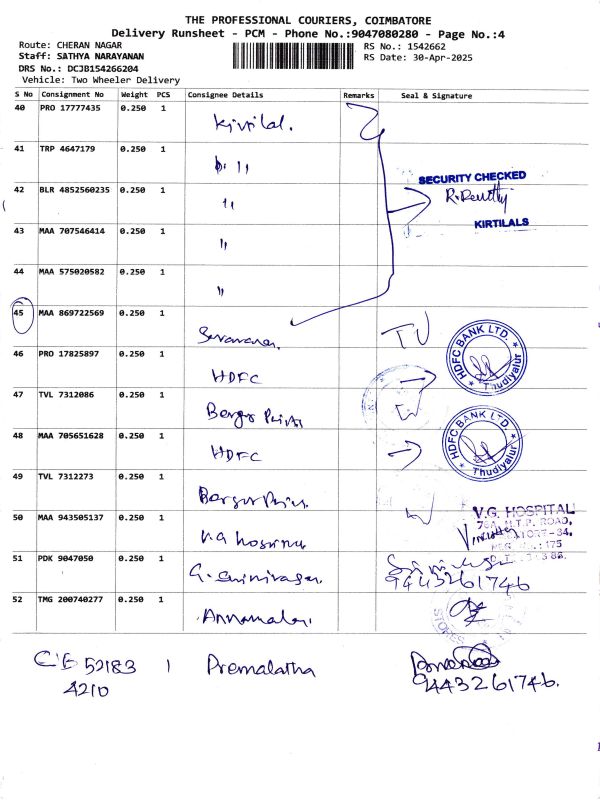 THE PROFESSIONAL COURIERS, COIMBATORE
Delivery Runsheet - PCM - Phone No.:9047080280 - Page No.:4
Route: CHERAN NAGAR
RS No.: 1542662
Staff: SATHYA NARAYANAN
RS Date: 30-Apr-2025
DRS No.: DCJB154266204
Vehicle: Two Wheeler Delivery
S No Consignment No Weight PCS Consignee Details Remarks Seal & Signature
40 PRO 17777435 0.250 1
Kirtilal.
41 TRP 4647179 0.250 1
SECURITY CHECKED
42 BLR 4852560235 0.250 1
KIRTILALS
43 MAA 707546414 0.250 1
44 MAA 575020582 0.250 1
45 MAA 869722569 0.250 1
Saravanan.
HDFC BANK LTD.
Thudiyalur
46 PRO 17825897 0.250 1
HDFC
47 TVL 7312086 0.250 1
HDFC BANK LTD.
Thudiyalur
48 MAA 705651628 0.250 1
HDFC
49 TVL 7312273 0.250 1
V.G. HOSPITAL
50 MAA 943505137 0.250 1
51 PDK 9047050 0.250 1
G. Srinivasan.
9443261746
52 TMG 200740277 0.250 1
Annamalai
STORES
CE 52183 1 Premalatha
4210
9443261746.